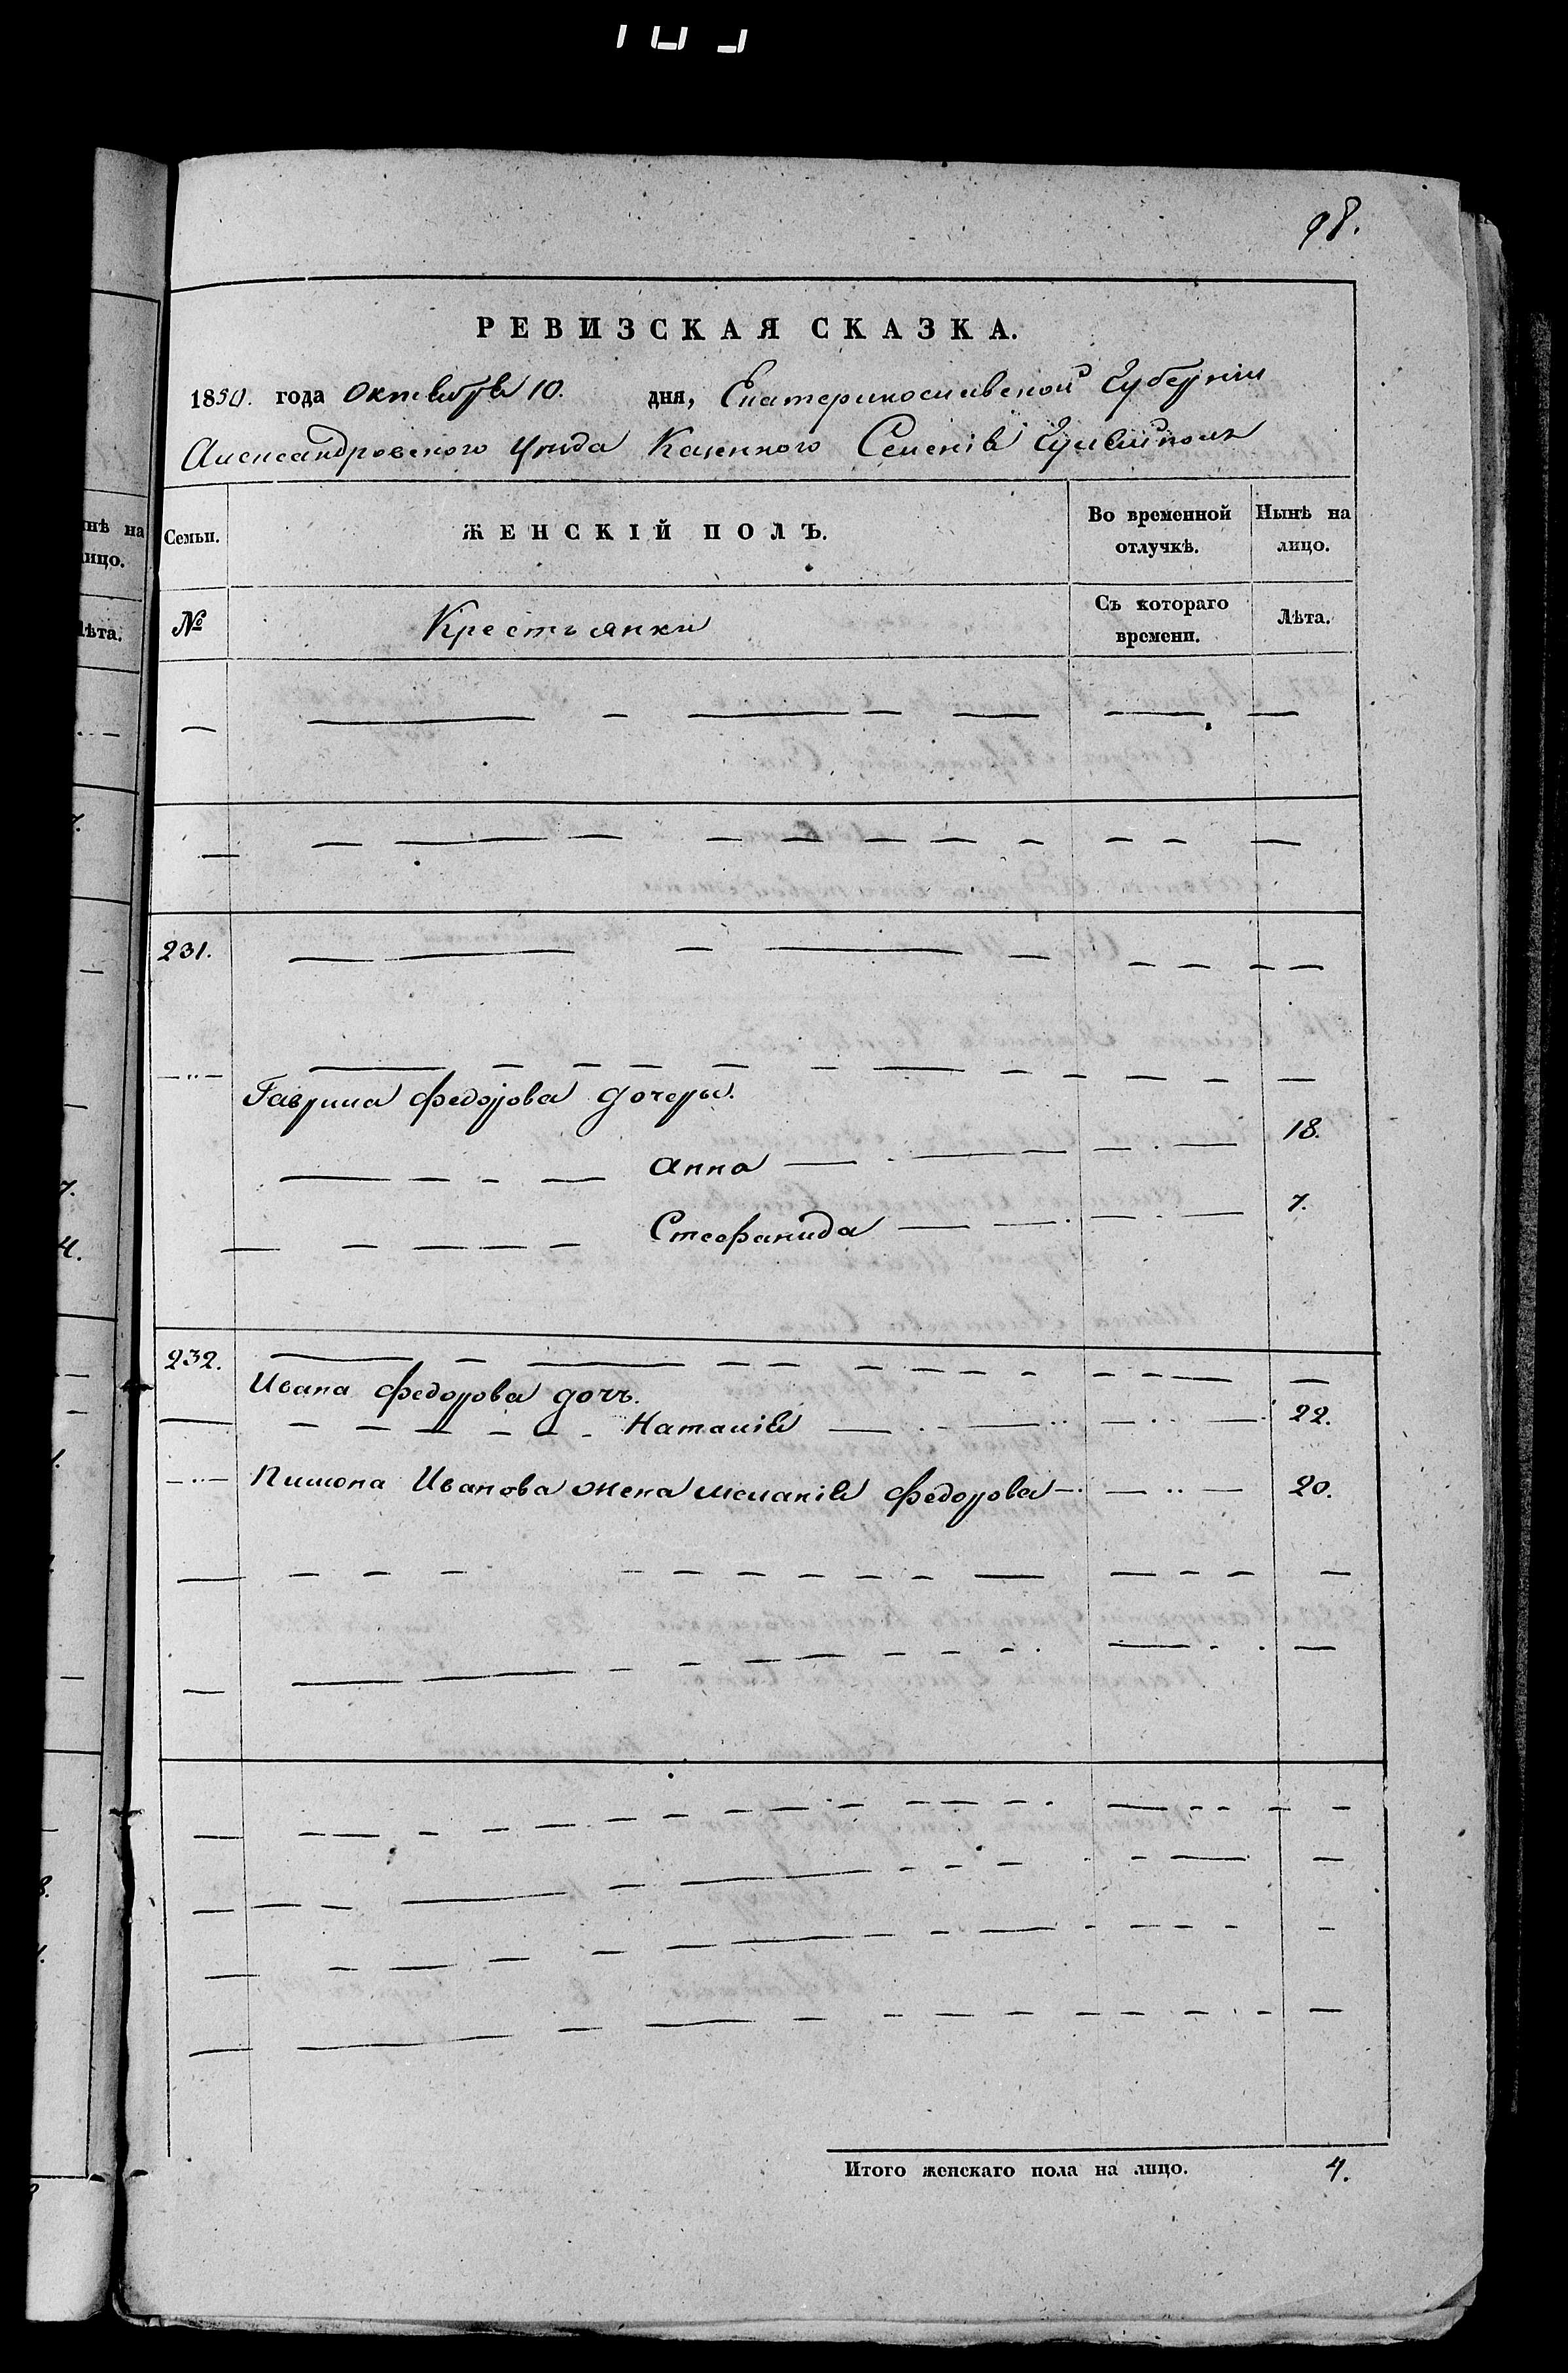 98.
РЕВИЗСКАЯ СКАЗКА.
1850. года Октября 10. дня, Екатеринославской Губернии
Александровского Уезда Казенного Селения Гуляйполя
Семьи. ЖЕНСКІЙ ПОЛЪ. Во временной отлучкѣ. Нынѣ на лицо.
№ Крестьянки Съ котораго времени. Лѣта.
231.
Гаврила Федорова дочеры.
Анна 18.
Стефанида 7.
232.
Ивана Федорова дочъ.
Наталія 22.
Пимона Иванова жена Меланія Федорова 20.
Итого женскаго пола на лицо. 4.